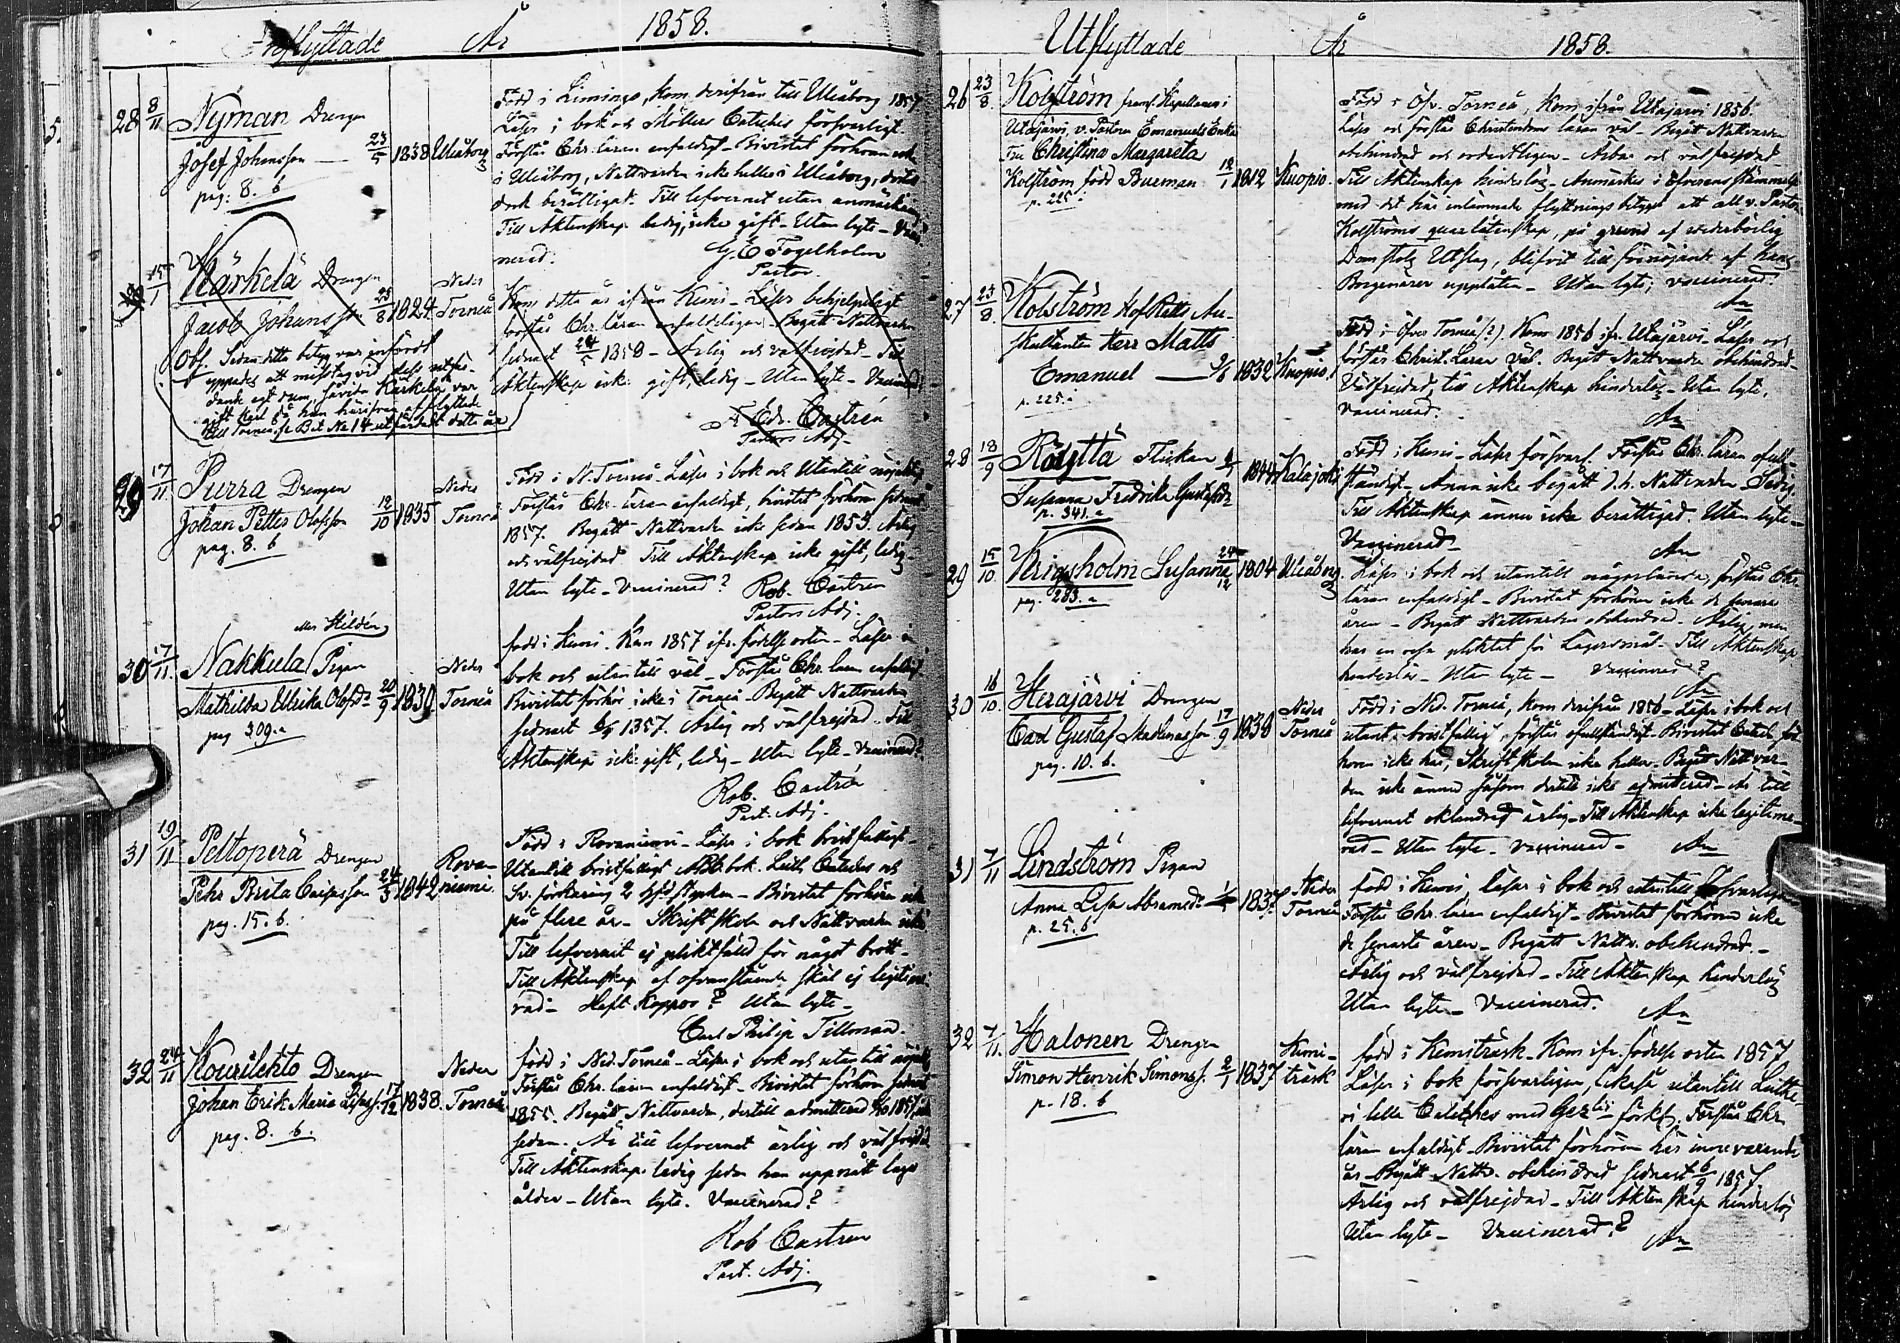 Inflyttade År 1858.
28 8/11 Nyman Drengen
Josef Johansson 23/5 1838 Uleåborg
pag. 8. b
Född i Limingo, Kom derifrån till Uleåborg 1857
Läser i bok och Möllers Catches försvarligt
Förstår Chr. läran enfaldigt - Bivistat förhören
i Uleåborg, Nattvarden icke heller i Uleåborg,
dock berättigat. Till lefvernet utan anmärkning
Till Äktenskap ledig, icke gift - Utan lyte - Vacci-
nerad.
G. E. Fogelholm
Pastor.
15/1 Kärkelä Drengen
Jacob Johansson 25/8 1824 Neder Torneå
Kom detta år ifrån Kemi - Läser behjelpeligt
förstår Chr. läran enfaldeligen - Begått Nattvarden
sednast 24/5 1858 - Ärlig och välfrejdad - Till
Äktenskap icke gift, ledig - Utan lyte - Vaccinerad
Obs Sedan detta betyg var infördt
uppgafs att misstag vid dess
egt rum, Kärkelä var
gift Karl då han härifrån utflyttade
till Torneå, se Bet. No 14 detta år
Castrén
Pastors Adj.
29 17/11 Purra Drengen
Johan Petter Olofsson 12/10 1835 Neder Torneå
pag. 8. b
Född i N. Torneå. Läser i bok och utantill nöjaktigt
Förstår Chr. läran enfaldigt, bivistat förhören sednast
1857. Begått Nattvarden icke sedan 1853. Ärlig
och välfrejdad Till Äktenskap icke gift, ledig -
Utan lyte - Vaccinerad? Rob. Castrén
Pastors Adj.
eller Hildén
30 17/11 Nakkula Pigan
Mathilda Ulrika Olofsdr 20/9 1830 Neder Torneå
pag 309. a
född i Kemi. Kom 1857 ifr. födelse orten - Läser i
bok och utantill väl - Förstår Chr. läran enfaldigt
Bivistat förhör icke i Torneå - Begått Nattvarden
sednast 1857. Ärlig och välfrejdad. Till
Äktenskap icke gift, ledig - Utan lyte - Vaccinerad?
Rob. Castrén
Past. Adj.
31 19/11 Peltoperä Drengen
Pehr Brita Caisasson 24/5 1842 Rova-
niemi.
pag. 15. b.
Född i Rovaniemi - Läser i bok bristfälligt -
Utantill bristfälligt Abb. bok. Luth. Catches och
Sv. förklaring 2 hufd stycken - Bivistat förhören icke
på flere år - Skriftskola och Nattvarden icke
Till lefvernet ej pliktfälld för något brott -
Till Äktenskap af ofvanstående skäl ej legitime-
rad - Haft Koppor? Utan lyte -
Carl Philip Tillman.
32 24/11 Kourilehto Drengen
Johan Erik Maria Lisass. 17/12 1838 Neder Torneå
pag. 8. b.
född i Ned. Torneå - Läser i bok och utantill nöjakt.
Förstår Chr. läran enfaldigt - Bivistat förhören sednast
1855. Begått Nattvarden, dertill admitterad 1857
sedan. Är till lefvernet ärlig och välfrejdad
Till Äktenskap ledig sedan han uppnått laga
ålder - Utan lyte. Vaccinerad?
Rob Castrén
Past. Adj.
Utflyttade År 1858.
26 23/8 Kolström framl. Kapellanen i
Utajärvi, v. Pastoren Emanuels Enka
Fru Christina Margareta
Kolström född Bucman 12/1 1812 Kuopio
p. 225. a
Född i Öfv. Torneå, Kom ifrån Utajärvi 1856.
Läser och förstår Christendoms läran väl - Begått Nattvarden
obehindrad och ordentligen - Ärbar och välfrejdad
Till Äktenskap hinderlös - Anmärkes i öfverensstämmelse
med det här inlemnade flyttningsbetyget att all v. Pastor
Kolströms qvarlåtenskap, på grund af vederbörlig
Domstols Utslag, blifvit till förnöjande af hans
Borgenärer upplåten - Utan lyte, vaccinerad.
27 23/8 Kolström Hof Rätts Au-
skultanten Herr Matts
Emanuel 9/8 1832 Kuopio.
p. 225. a
Född i Öfver Torneå(?) Kom 1856 ifr. Utajärvi. Läser och
förstår Christ. Läran väl. Begått Nattvarden obehindrad -
Välfrejdad, till Äktenskap hinderlös - Utan lyte,
vaccinerad.
28 18/9 Röyttä Flickan 1844 Kalajoki
Susanna Fredrika Gustafsdr
p. 341. a
Född i Kemi - Läser försvarl. Förstår Chr. läran ofull-
ständigt - Annu icke begått d. h. Nattvarden - Sedig
Till Äktenskap ännu icke berättigad. Utan lyte -
Vaccinerad -
29 15/10 Kringsholm Susanna 24/12 1804 Uleåborg
pag. 283. a
Läser i bok och utantill någorlunda, förstår Chr.
läran enfaldigt - Bivistat förhören icke de senare
åren - Begått Nattvarden obehindrad - Ärlig, men
har en gång pliktat för Lägersmål - Till Äktenskap
hinderlös - Utan lyte - Vaccinerad?
30 16/10 Herajärvi Drengen
Carl Gustaf Madlenasson 17/9 1838 Neder Torneå
pag. 10. b.
Född i Ned. Torneå, Kom derifrån 1856 - Läser i bok och
utant. bristfälligt, förstår ofullständigt - Bivistat Catech. för-
hören icke här, Skriftskolan icke heller - Begått Nattvar-
den icke ännu såsom dertill icke admitterad - Är till
lefvernet oklandrad ärlig - Till Äktenskap icke legitime-
rad - Utan lyte - vaccinerad -
31 7/11 Lindström Pigan
Anna Lisa Abramsdr 1837 Neder Torneå
p. 25. b
född i Kemi, läser i bok och utantill försvarligen
Förstår Chr. läran enfaldigt - Bivistat förhören icke
de senaste åren - Begått Nattv. obehindrad -
Ärlig och välfrejdad - Till Äktenskap hinderlös
Utan lyte - Vaccinerad.
32 7/11 Halonen Drengen
Simon Henrik Simonss. 2/1 1837 Kemi-
träsk
p. 18. b
född i Kemiträsk - Kom ifr. födelse orten 1857
Läser i bok försvarligen, likaså utantill Luthe-
ri lilla Catches med Gezelii förkl., Förstår Chr.
läran enfaldigt - Bivistat förhören här innevarande
år - Begått Nattv. obehindrad sednast 6/9 1857
Ärlig och välfrejdad - Till Äktenskap hinderlös
Utan lyte - Vaccinerad?